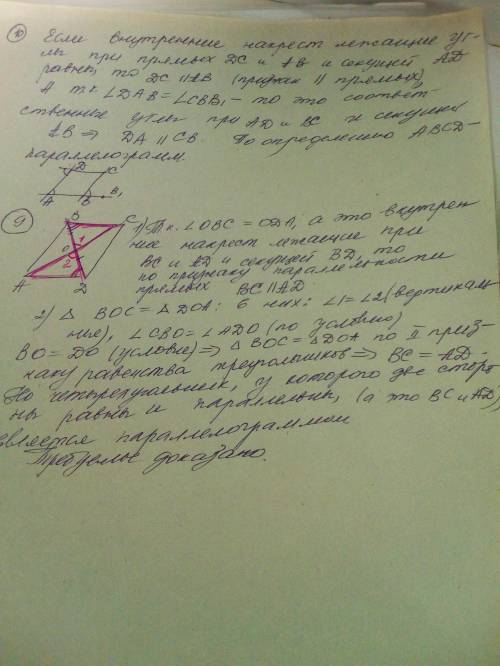 10 Если внутренние накрест лежащие уг-
лы при прямых DC и AB и секущей AD
равны, то DC || AB (признак || прямых)
А т.к ∠DAB = ∠CBB₁ - то это соответ-
ственные углы при AD и BC и секущей
AB ⇒ DA || CB. По определению ABCD-
параллелограмм.
D C
A B B₁
9
B C
1
O
2
A D
1) Т.к. ∠OBC = ODA, а это внутрен
ние накрест лежащие при
BC и AD и секущей BD, то
по признаку параллельности
прямых BC || AD.
2) △ BOC = △ DOA: в них: ∠1 = ∠2 (вертикаль
ные), ∠CBO = ∠ADO (по условию)
BO = DO (условие) ⇒ △BOC = △DOA по II приз-
наку равенства треугольников ⇒ BC = AD.
Но четырехугольник, у которого две сторо
ны равны и параллельны, (а это BC и AD)
является параллелограммом
Требуемое доказано.